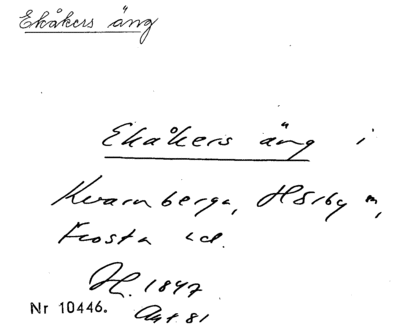 Ekåkers äng
Ekåkers äng i
Kvarnberga, Hörby sn,
Frosta hd.
H. 1847
Nr 10446. Akt 81